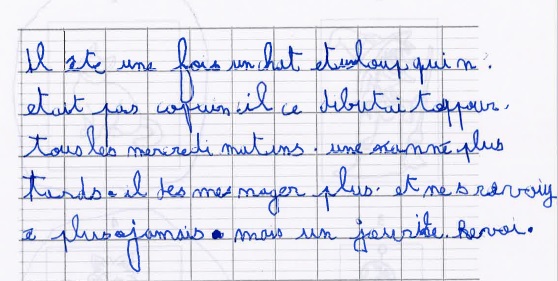 Il ete une fois un chat et un loup qui n'
etait pas copun. il ce debutai toppour.
tous les mercredi mutins. une xanné plus
tards. il des mes nager plus. et ne s revoiy
e plus jamais. mais un jour ile. Revoi.